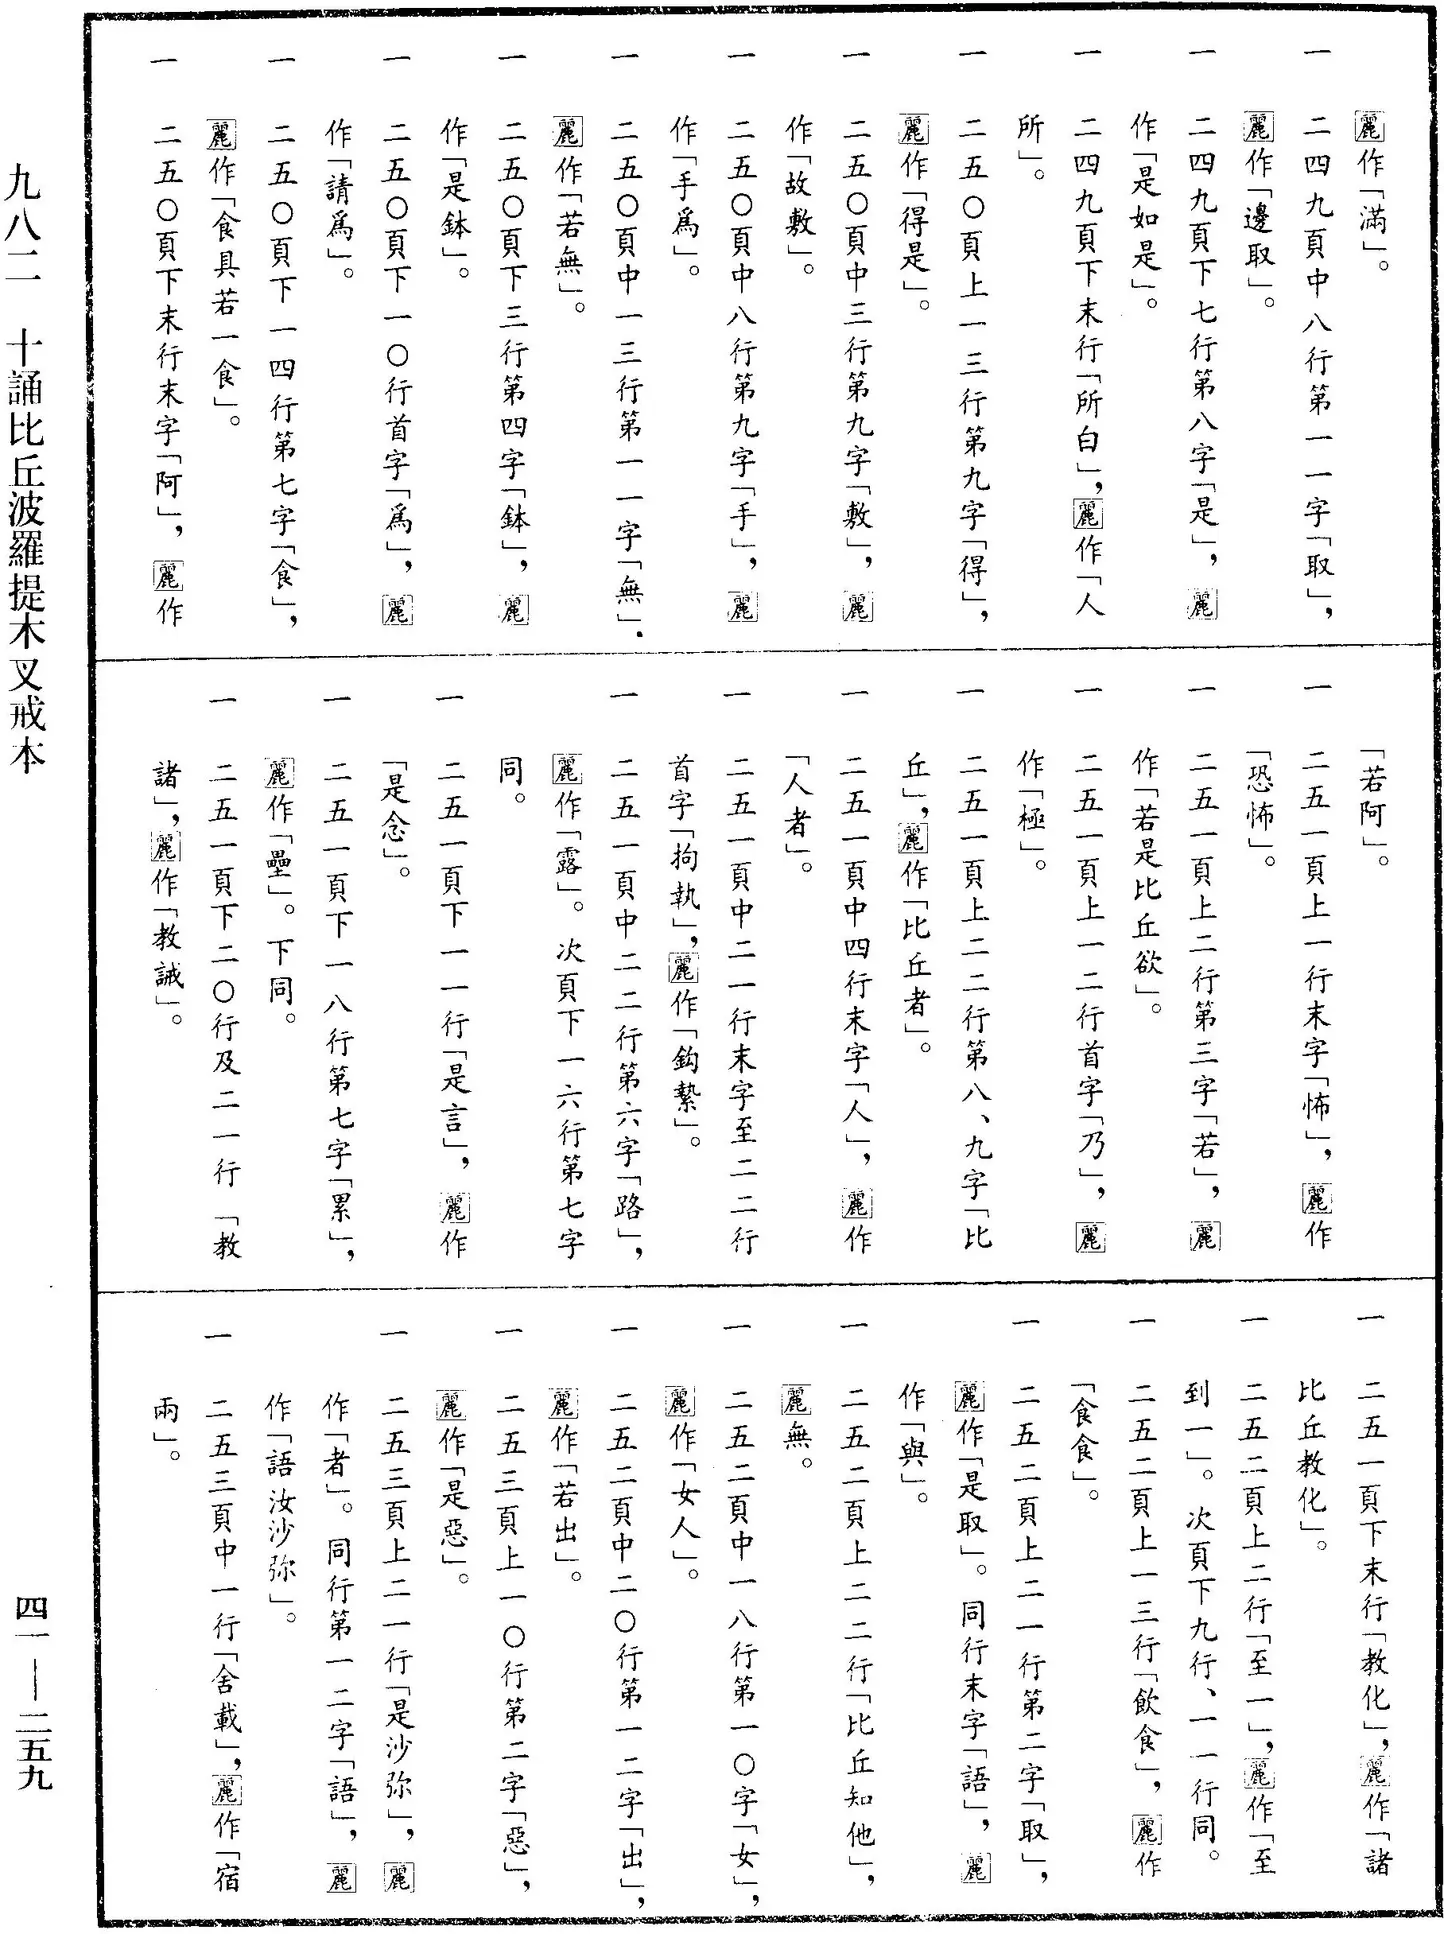 麗作「滿」。
一　二四九頁中八行第一一字「取」，
麗作「邊取」。
一　二四九頁下七行第八字「是」，麗
作「是如是」。
一　二四九頁下末行「所白」，麗作「人
所」。
一　二五〇頁上一三行第九字「得」，
麗作「得是」。
一　二五〇頁中三行第九字「敷」，麗
作「故敷」。
一　二五〇頁中八行第九字「手」，麗
作「手爲」。
一　二五〇頁中一三行第一一字「無」．
麗作「若無」。
一　二五〇頁下三行第四字「鉢」，麗
作「是鉢」。
一　二五〇頁下一〇行首字「爲」，麗
作「請爲」。
一　二五〇頁下一四行第七字「食」，
麗作「食具若一食」。
一　二五〇頁下末行末字「阿」，麗作
「若阿」。
一　二五一頁上一行末字「怖」，麗作
「恐怖」。
一　二五一頁上二行第三字「若」，麗
作「若是比丘欲」。
一　二五一頁上一二行首字「乃」，麗
作「極」。
一　二五一頁上二二行第八、九字「比
丘」，麗作「比丘者」。
一　二五一頁中四行末字「人」，麗作
「人者」。
一　二五一頁中二一行末字至二二行
首字「拘執」，麗作「鈎縶」。
一　二五一頁中二二行第六字「路」，
麗作「露」。次頁下一六行第七字
同。
一　二五一頁下一一行「是言」，麗作
「是念」。
一　二五一頁下一八行第七字「累」，
麗作「壘」。下同。
一　二五一頁下二〇行及二一行「教
諸」，麗作「教誡」。
一　二五一頁下末行「教化」，麗作「諸
比丘教化」。
一　二五二頁上二行「至一」，麗作「至
到一」。次頁下九行、一一行同。
一　二五二頁上一三行「飲食」，麗作
「食食」。
一　二五二頁上二一行第二字「取」，
麗作「是取」。同行末字「語」，麗
作「與」。
一　二五二頁上二二行「比丘知他」，
麗無。
一　二五二頁中一八行第一〇字「女」，
麗作「女人」。
一　二五二頁中二〇行第一二字「出」，
麗作「若出」。
一　二五三頁上一〇行第二字「惡」，
麗作「是惡」。
一　二五三頁上二一行「是沙弥」，麗
作「者」。同行第一二字「語」，麗
作「語汝沙弥」。
一　二五三頁中一行「舍載」，麗作「宿
兩」。
九八二　十誦比丘波羅提木叉戒本
四一—二五九